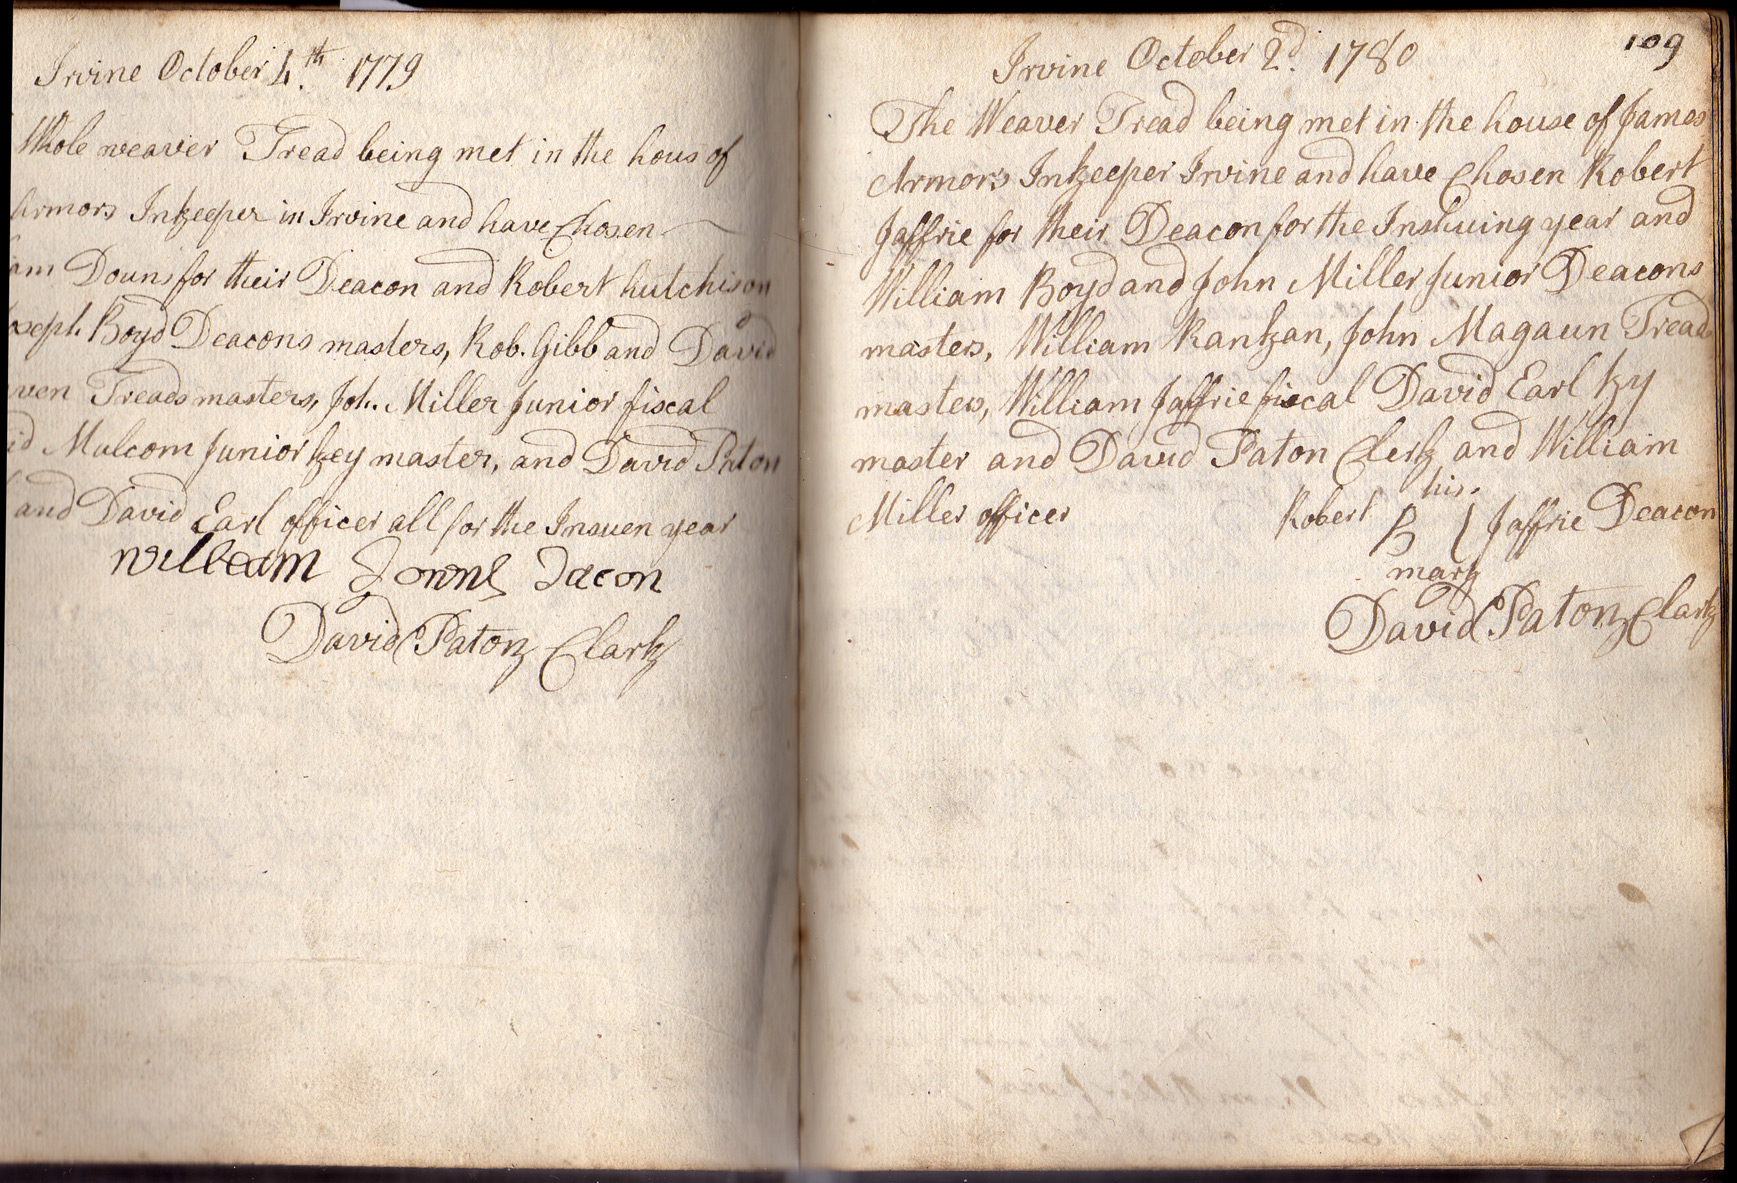 Irvine October 4.th 1779
Whole weaver Tread being met in the hous of
Armors Inkeeper in Irvine and have Chosen
am Douns for their Deacon and Robert hutchison
oseph Boyd Deacons masters, Rob. Gibb and David
wen Treads masters, Joh. Miller Junior fiscal
id Mulcom Junior key master, and David Paton
and David Earl officer all for the Insuen year
william Downs Dacon
David Paton Clark
109
Irvine October 2d. 1780
The Weaver Tread being met in the house of James
Armors Inkeeper Irvine and have Chosen Robert
Jaffrie for their Deacon for the Inshuing year and
William Boyd and John Miller Junior Deacons
masters, William Rankan, John Magaun Treads
masters, William Jaffrie fiscal David Earl ky
master and David Paton Clerk and William
Miller officer
Robert his B mark Jaffrie Deacon
David Paton Clark